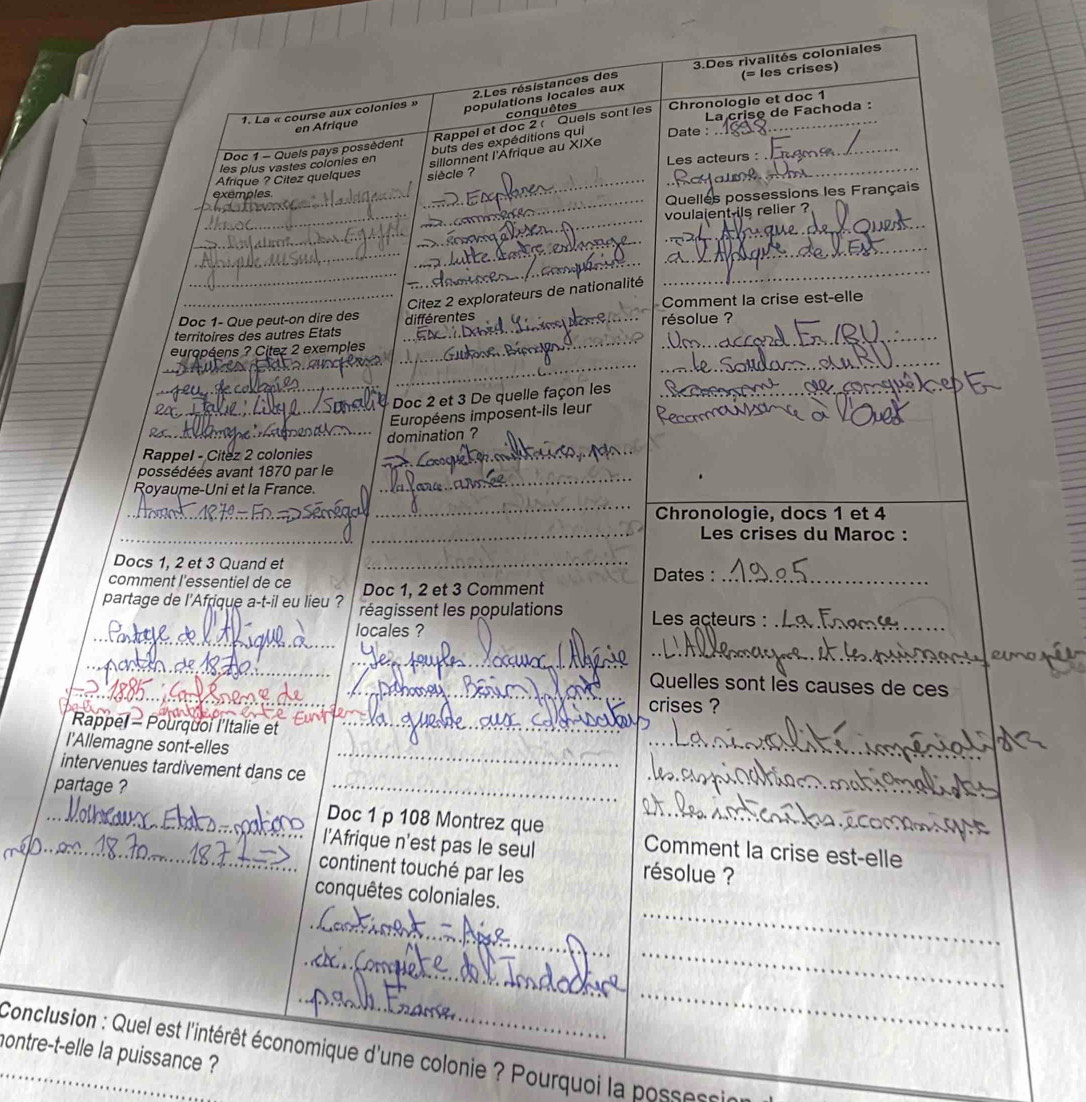 1. La « course aux colonies »
en Afrique
Doc 1 – Quels pays possèdent
les plus vastes colonies en
Afrique ? Citez quelques
exemples.
Afrique du Sud
Doc 1- Que peut-on dire des
territoires des autres Etats
européens ? Citez 2 exemples
-> Autres Etats
peu de colonies
ex Italie : Libye / Somalie
ex Allemagne : Cameroun
Rappel - Citez 2 colonies
possédées avant 1870 par le
Royaume-Uni et la France.
Avant 1870 - Fr => Sénégal
Docs 1, 2 et 3 Quand et
comment l'essentiel de ce
partage de l'Afrique a-t-il eu lieu ?
Partage de l'Afrique à
partir de 1870.
-> 1885
Rappel – Pourquoi l'Italie et
l'Allemagne sont-elles
intervenues tardivement dans ce
partage ?
Etats - nations
nés en 1870 - 1871 =>
2.Les résistances des
populations locales aux
conquêtes
Rappel et doc 2 : Quels sont les
buts des expéditions qui
sillonnent l'Afrique au XIXe
siècle ?
-> Explorer
-> commercer
-> lutte contre esclavage
Citez 2 explorateurs de nationalité
différentes
Doc 2 et 3 De quelle façon les
Européens imposent-ils leur
domination ?
-> Conquêtes militaires, par
la force armée
Doc 1, 2 et 3 Comment
réagissent les populations
locales ?
Les peuples locaux (Algérie
/ Dahomey Bénin) font
la guerre aux colonisateurs
Doc 1 p 108 Montrez que
l'Afrique n'est pas le seul
continent touché par les
conquêtes coloniales.
Continent = Asie
ex : Conquête de l'Indochine
par la France
3.Des rivalités coloniales
(= les crises)
Chronologie et doc 1
La crise de Fachoda :
Date : 1898
Les acteurs : France /
Royaume-Uni
Quelles possessions les Français
voulaient-ils relier ?
-> L'Afrique de l'Ouest
à l'Afrique de l'Est
Comment la crise est-elle
résolue ?
Un accord Fr / RU
le Soudan au RU
Reconnaissance à l'Ouest
Chronologie, docs 1 et 4
Les crises du Maroc :
Dates : 1905
Les acteurs : La France
L'Allemagne et les puissances européennes
Quelles sont les causes de ces
crises ?
La rivalité impérialiste
les aspirations nationalistes
et les intérêts économiques
Comment la crise est-elle
résolue ?
Conclusion : Quel est l'intérêt économique d'une colonie ? Pourquoi la possession
montre-t-elle la puissance ?